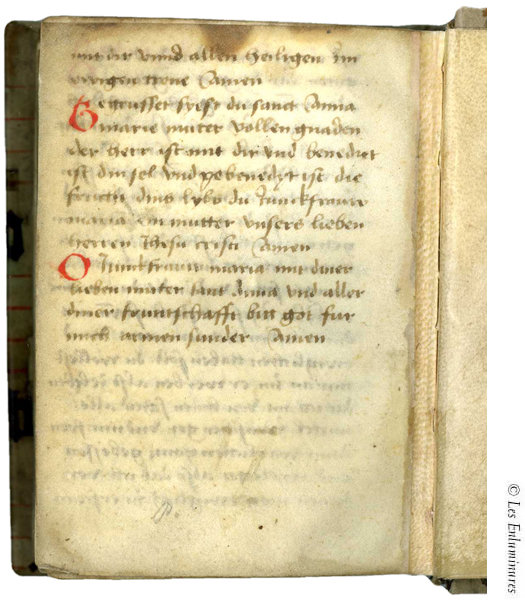 mit dir vnnd allen heiligen im
ewigen trone Amen
Gegrusset syest du sanct Anna
marie muter vollen gnaden
der herr ist mit dir vnd benedict
ist din sel vnd gebenedyt ist die
frucht dins lybs du Junckfraw
maria ein mutter vnsers lieben
herren Jhesu cristi Amen
O Junckfraw maria mit diner
lieben muter sant Anna vnd aller
diner fruntschafft bitt got fur
mich armen sunder Amen
© Les Enluminures